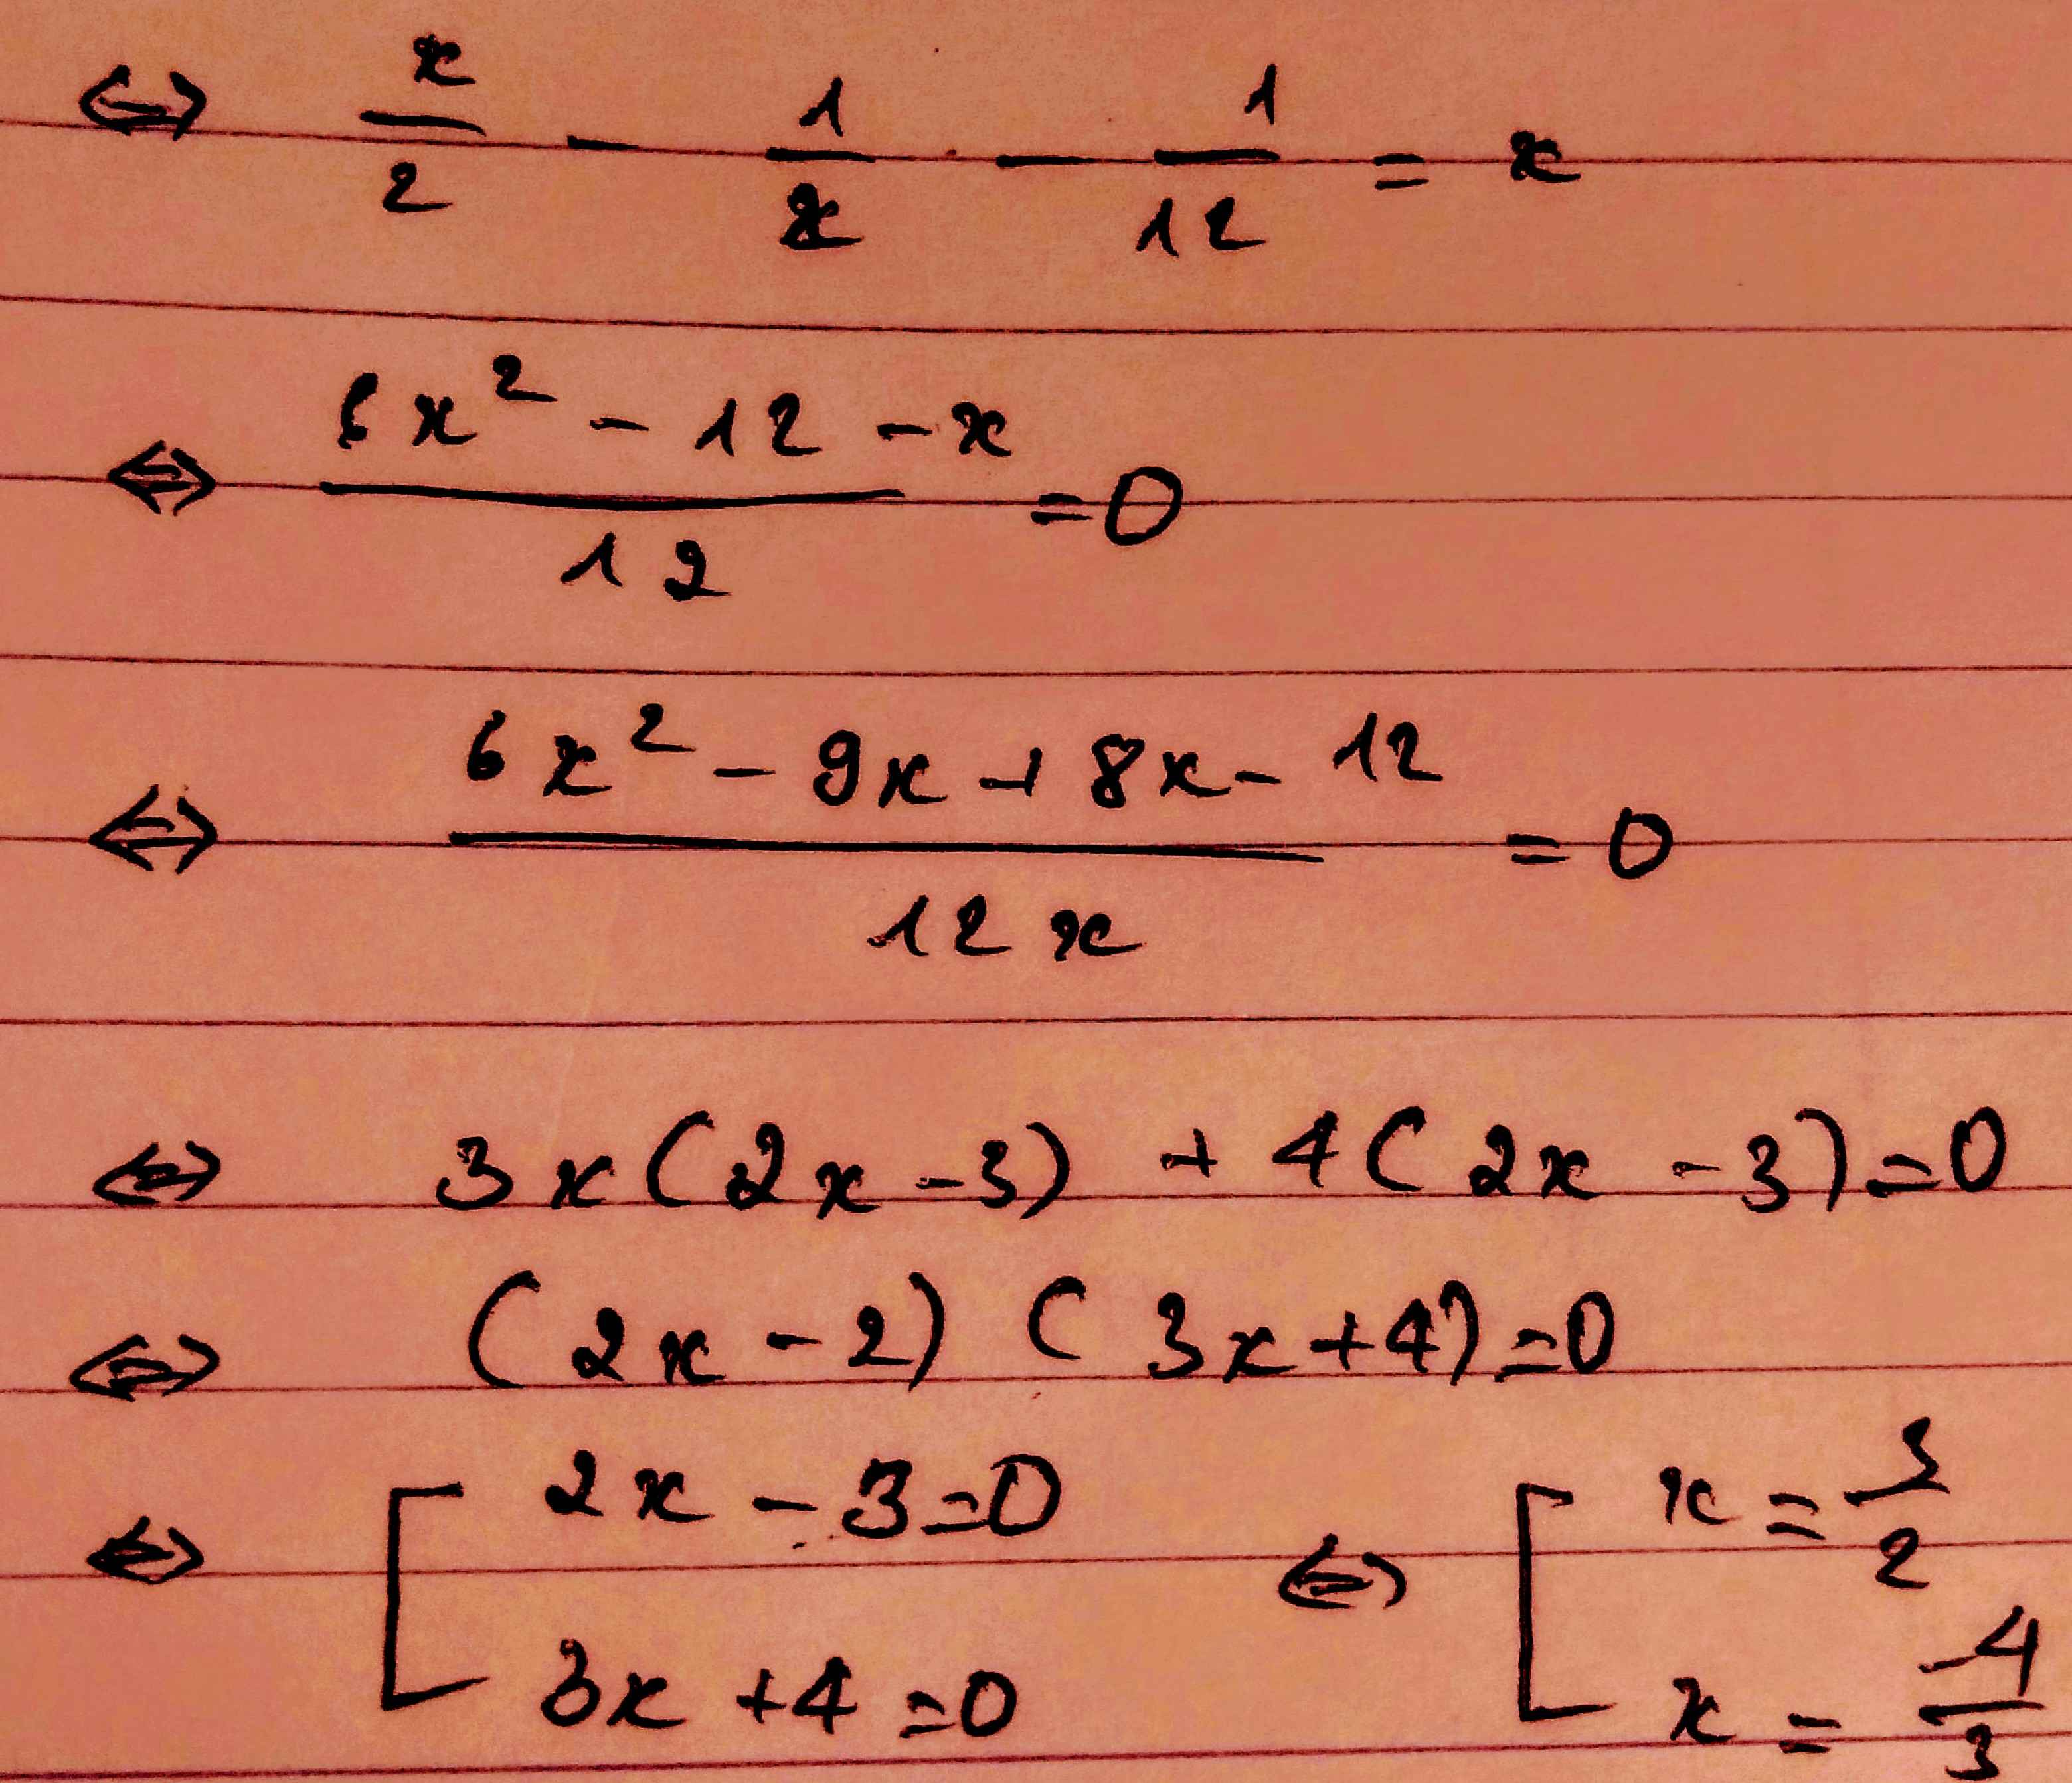 ⇔ x/2 - 1/x - 1/12 = x
⇔ (6x² - 12 - x)/12 = 0
⇔ (6x² - 9x + 8x - 12)/(12x) = 0
⇔ 3x(2x - 3) + 4(2x - 3) = 0
⇔ (2x - 2)(3x + 4) = 0
⇔ [ 2x - 3 = 0 ⇔ [ x = 3/2
3x + 4 = 0 x = -4/3